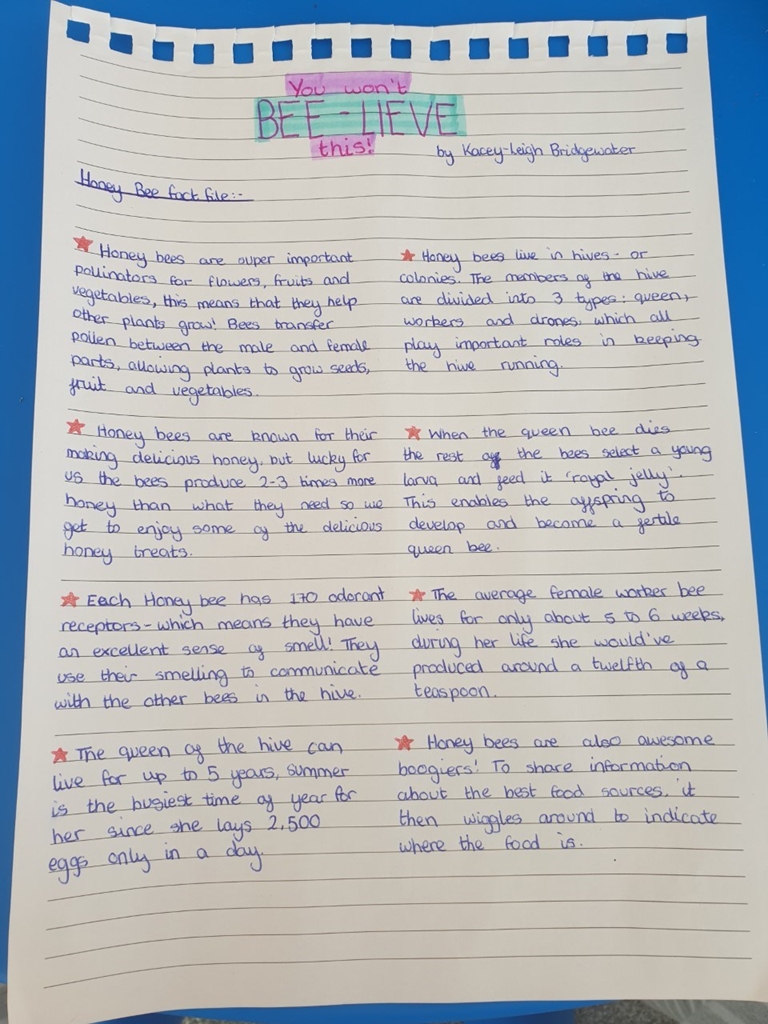 You won't
BEE-LIEVE
this!
by Kacey-Leigh Bridgewater
Honey Bee fact file:-
Honey bees are super important
pollinators for flowers, fruits and
vegetables, this means that they help
other plants grow! Bees transfer
pollen between the male and female
parts, allowing plants to grow seeds,
fruit and vegetables.
Honey bees are known for their
making delicious honey, but lucky for
us the bees produce 2-3 times more
honey than what they need so we
get to enjoy some of the delicious
honey treats.
Each Honey bee has 170 odorant
receptors - which means they have
an excellent sense of smell! They
use their smelling to communicate
with the other bees in the hive.
The queen of the hive can
live for up to 5 years, summer
is the busiest time of year for
her since she lays 2,500
eggs only in a day.
Honey bees live in hives - or
colonies. The members of the hive
are divided into 3 types: queen,
workers and drones, which all
play important roles in keeping
the hive running.
When the queen bee dies
the rest of the bees select a young
larva and feed it 'royal jelly'.
This enables the offspring to
develop and become a fertile
queen bee.
The average female worker bee
lives for only about 5 to 6 weeks,
during her life she would've
produced around a twelfth of a
teaspoon.
Honey bees are also awesome
boogiers! To share information
about the best food sources, it
then wiggles around to indicate
where the food is.